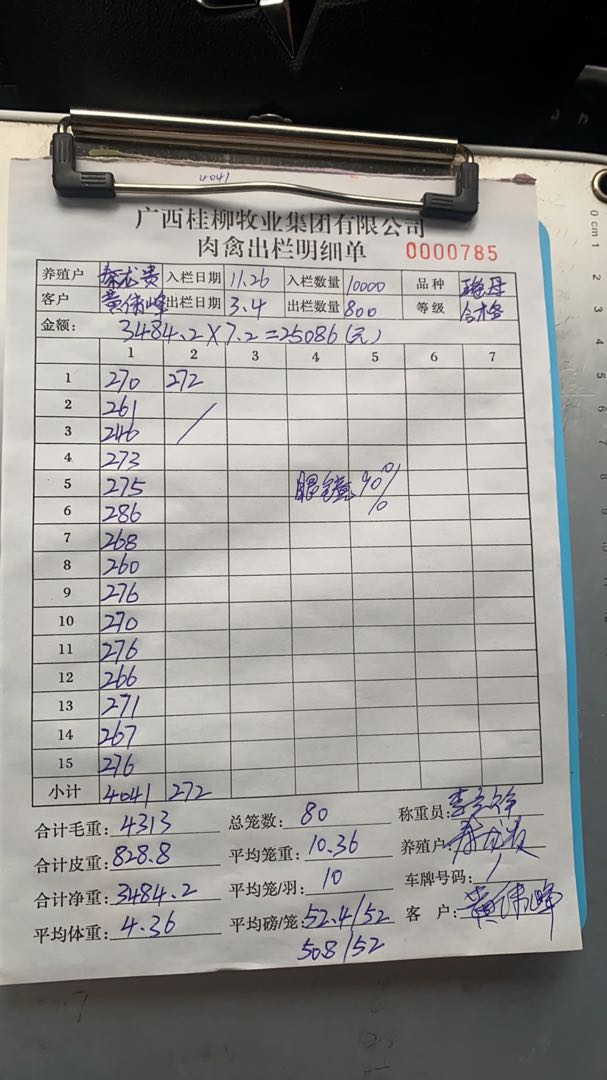 4041
广西桂柳牧业集团有限公司
肉禽出栏明细单 0000785
养殖户 龙贵 入栏日期 11.26 入栏数量 10000 品种
客户 黄伟峰 出栏日期 3.4 出栏数量 800 等级 合格
金额: 3484.2×7.2=25086(元)
1 2 3 4 5 6 7
1 270 272
2 261
3 246
4 273
5 275 眼镜 90%
6 286
7 268
8 260
9 276
10 270
11 276
12 266
13 271
14 267
15 276
小计 4041 272
合计毛重: 4313 总笼数: 80 称重员:
合计皮重: 828.8 平均笼重: 10.36 养殖户:
合计净重: 3484.2 平均笼/羽: 10 车牌号码: /
平均体重: 4.36 平均磅/笼: 52.4/52 客户: 黄伟峰
50.8/52
0 cm 1 2 3 4 5 6 7